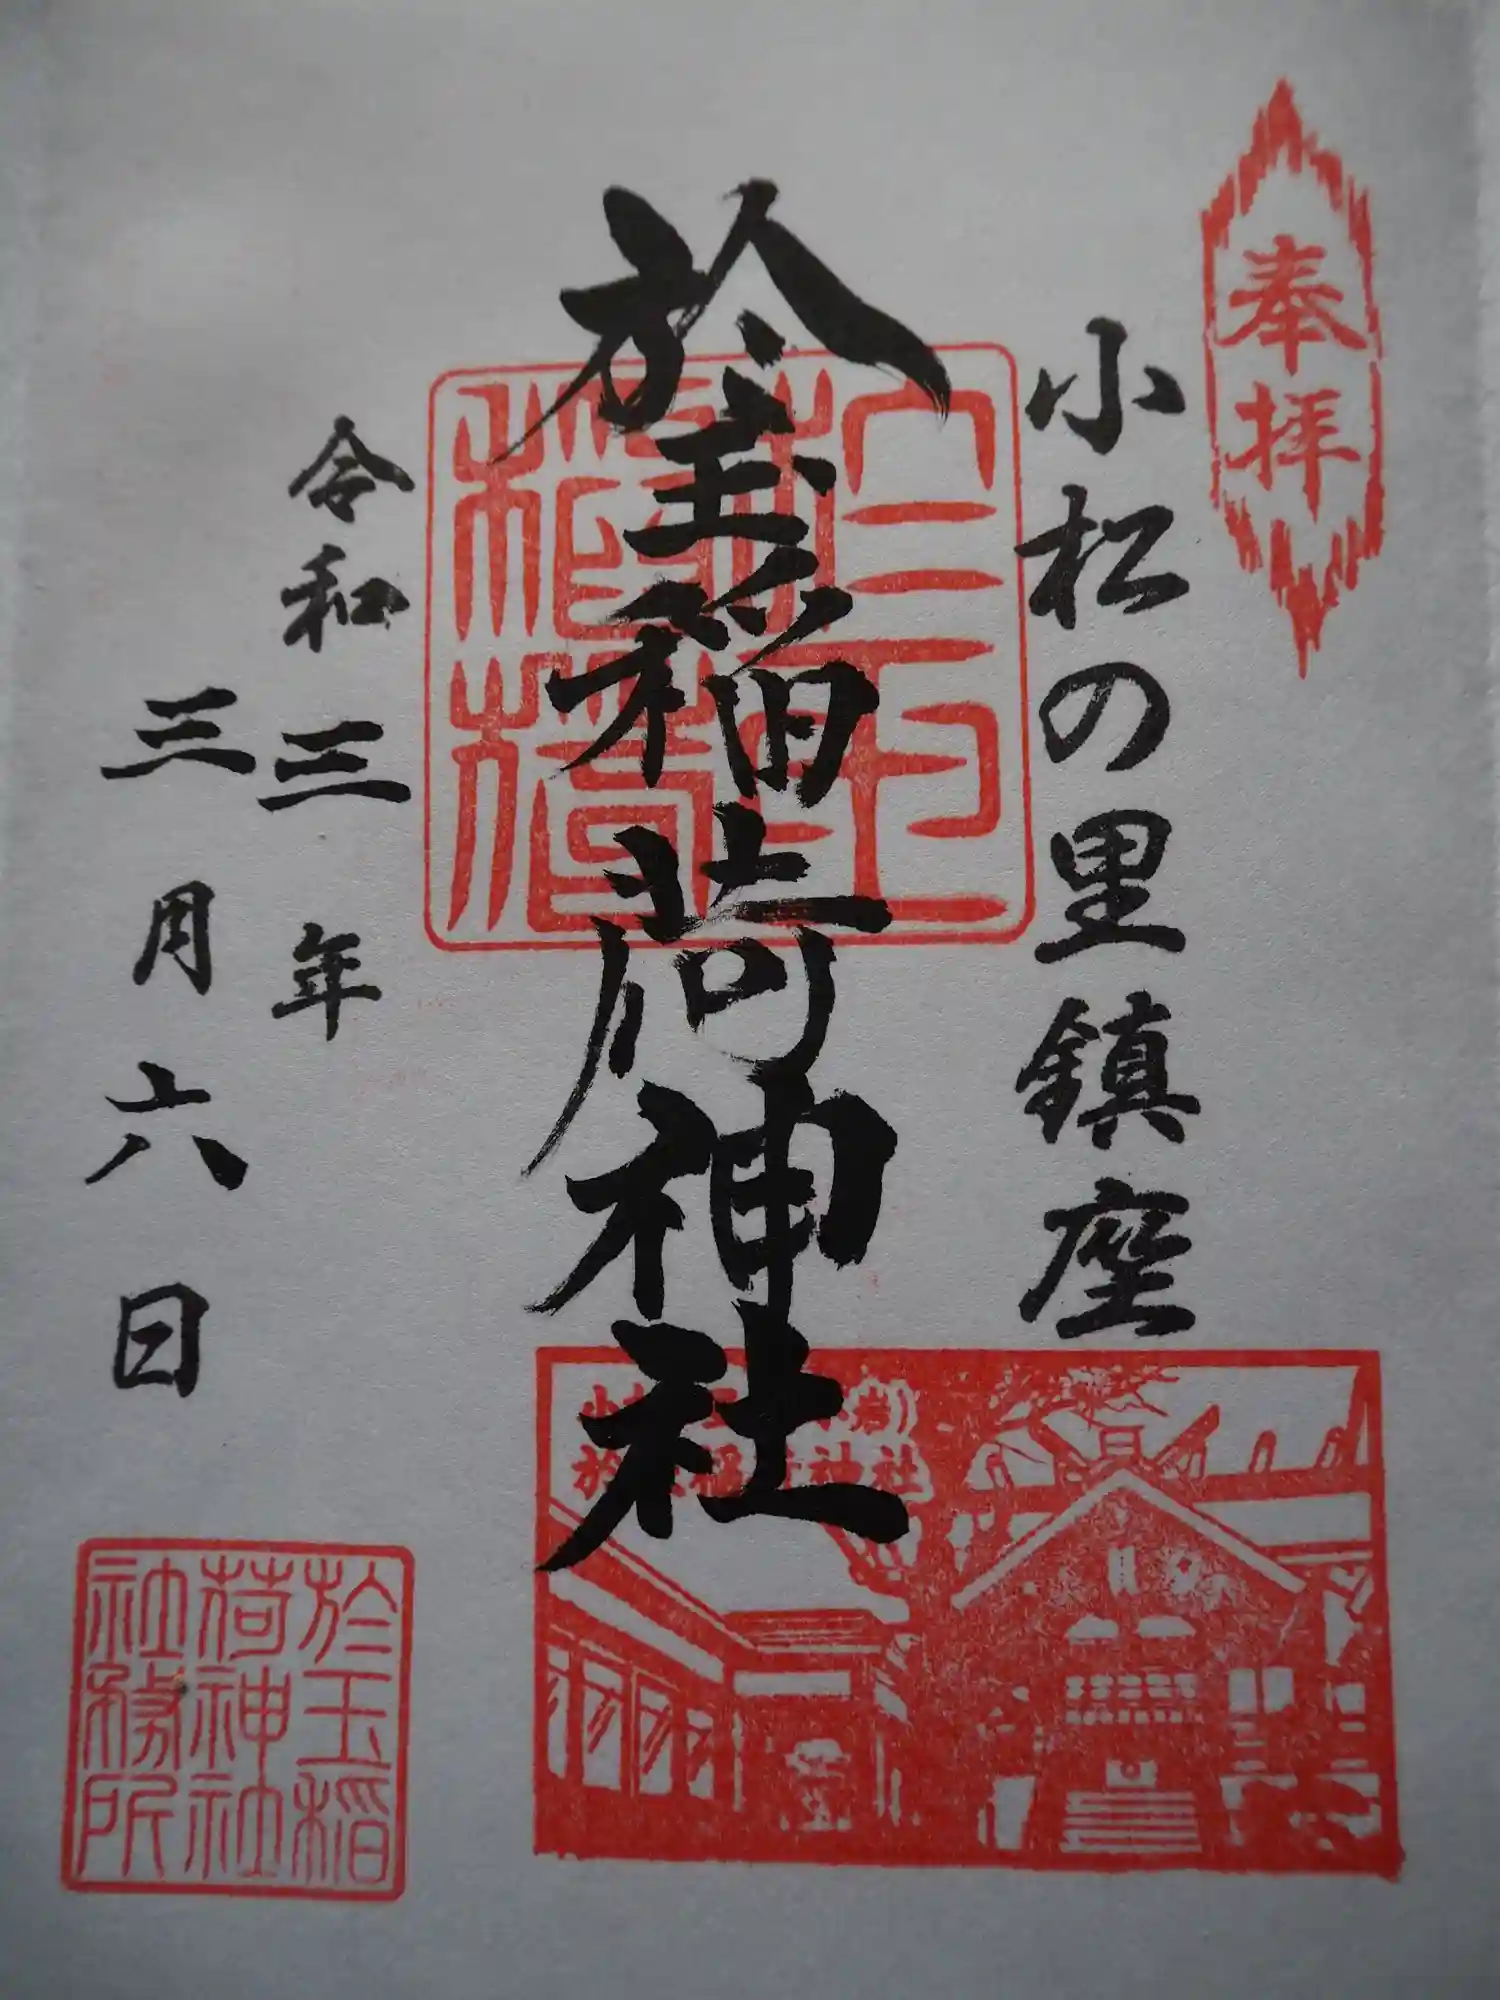 奉拝
小松の里鎮座
於玉稲荷神社
令和三年
三月六日
於玉稲荷
於玉稲荷神社
於玉稲
荷神社
社務所